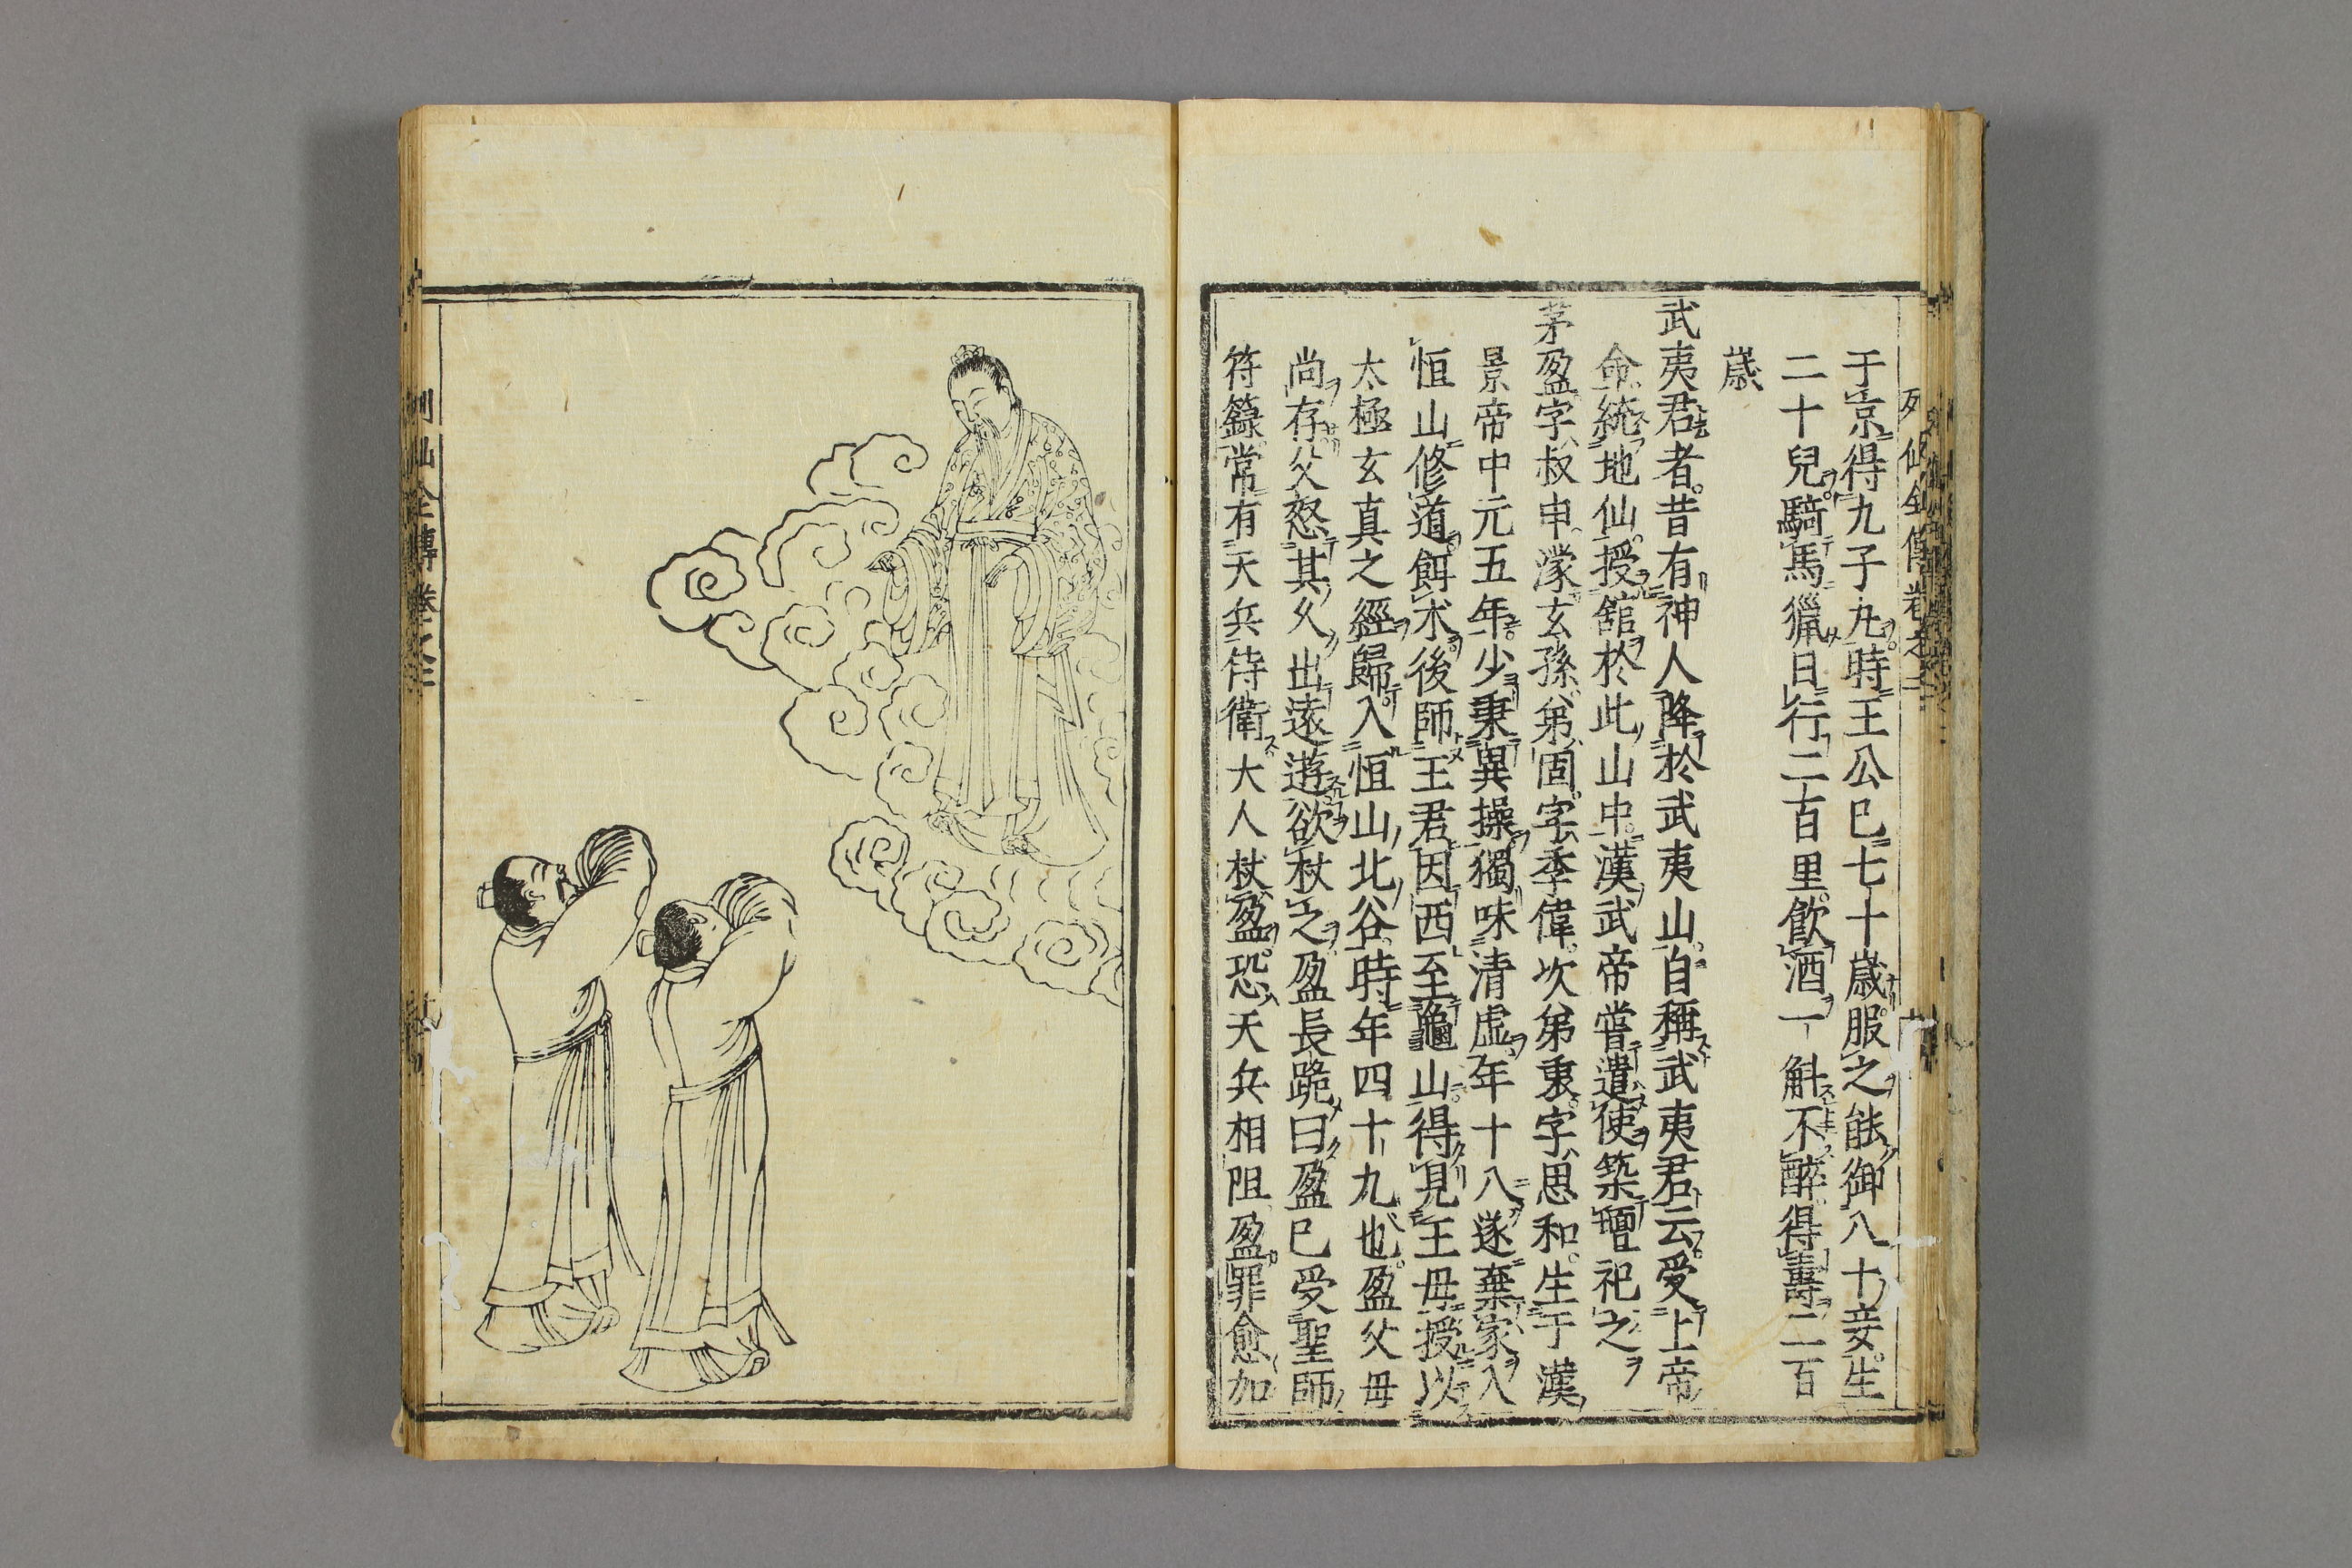 列仙全傳卷之三
于京得九子丸時王公已七十歲服之能御八十妾生
二十兒騎馬獵日行二百里飲酒一斛不醉得壽二百
歲
武夷君者昔有神人降於武夷山自稱武夷君云受上帝
命統地仙授舘於此山中漢武帝嘗遣使築壇祀之
茅盈字叔申濛玄孫弟固字季偉次弟衷字思和生于漢
景帝中元五年少秉異操獨味清虛年十八遂棄家入
恒山修道餌朮後師王君因西至龜山得見王母授以
太極玄真之經歸入恒山北谷時年四十九也盈父母
尚存父怒其久出遠遊欲杖之盈長跪曰盈已受聖師
符籙常有天兵侍衛大人杖盈恐天兵相阻盈罪愈加
列仙全傳卷之三